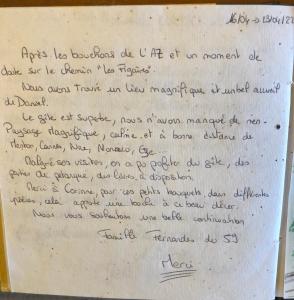 16/04 → 23/04/22
Après les bouchons de L'A7 et un moment de
doute sur le chemin "les Figuiers".
Nous avons trouvé un lieu magnifique et un bel accueil
de Daniel.
Le gîte est superbe, nous n'avons manqué de rien.
Paysage Magnifique, calme et à bonne distance de
Menton, Cannes, Nice, Monaco, Eze.
Malgré ses visites, on a pu profiter du gîte, des
parties de pétanque, des livres à disposition.
Merci à Corinne, pour ces petits bouquets, dans différentes
pièces, cela ajoute une touche à ce beau décor.
Nous vous souhaitons une belle continuation
Famille Fernandes du 59
Merci